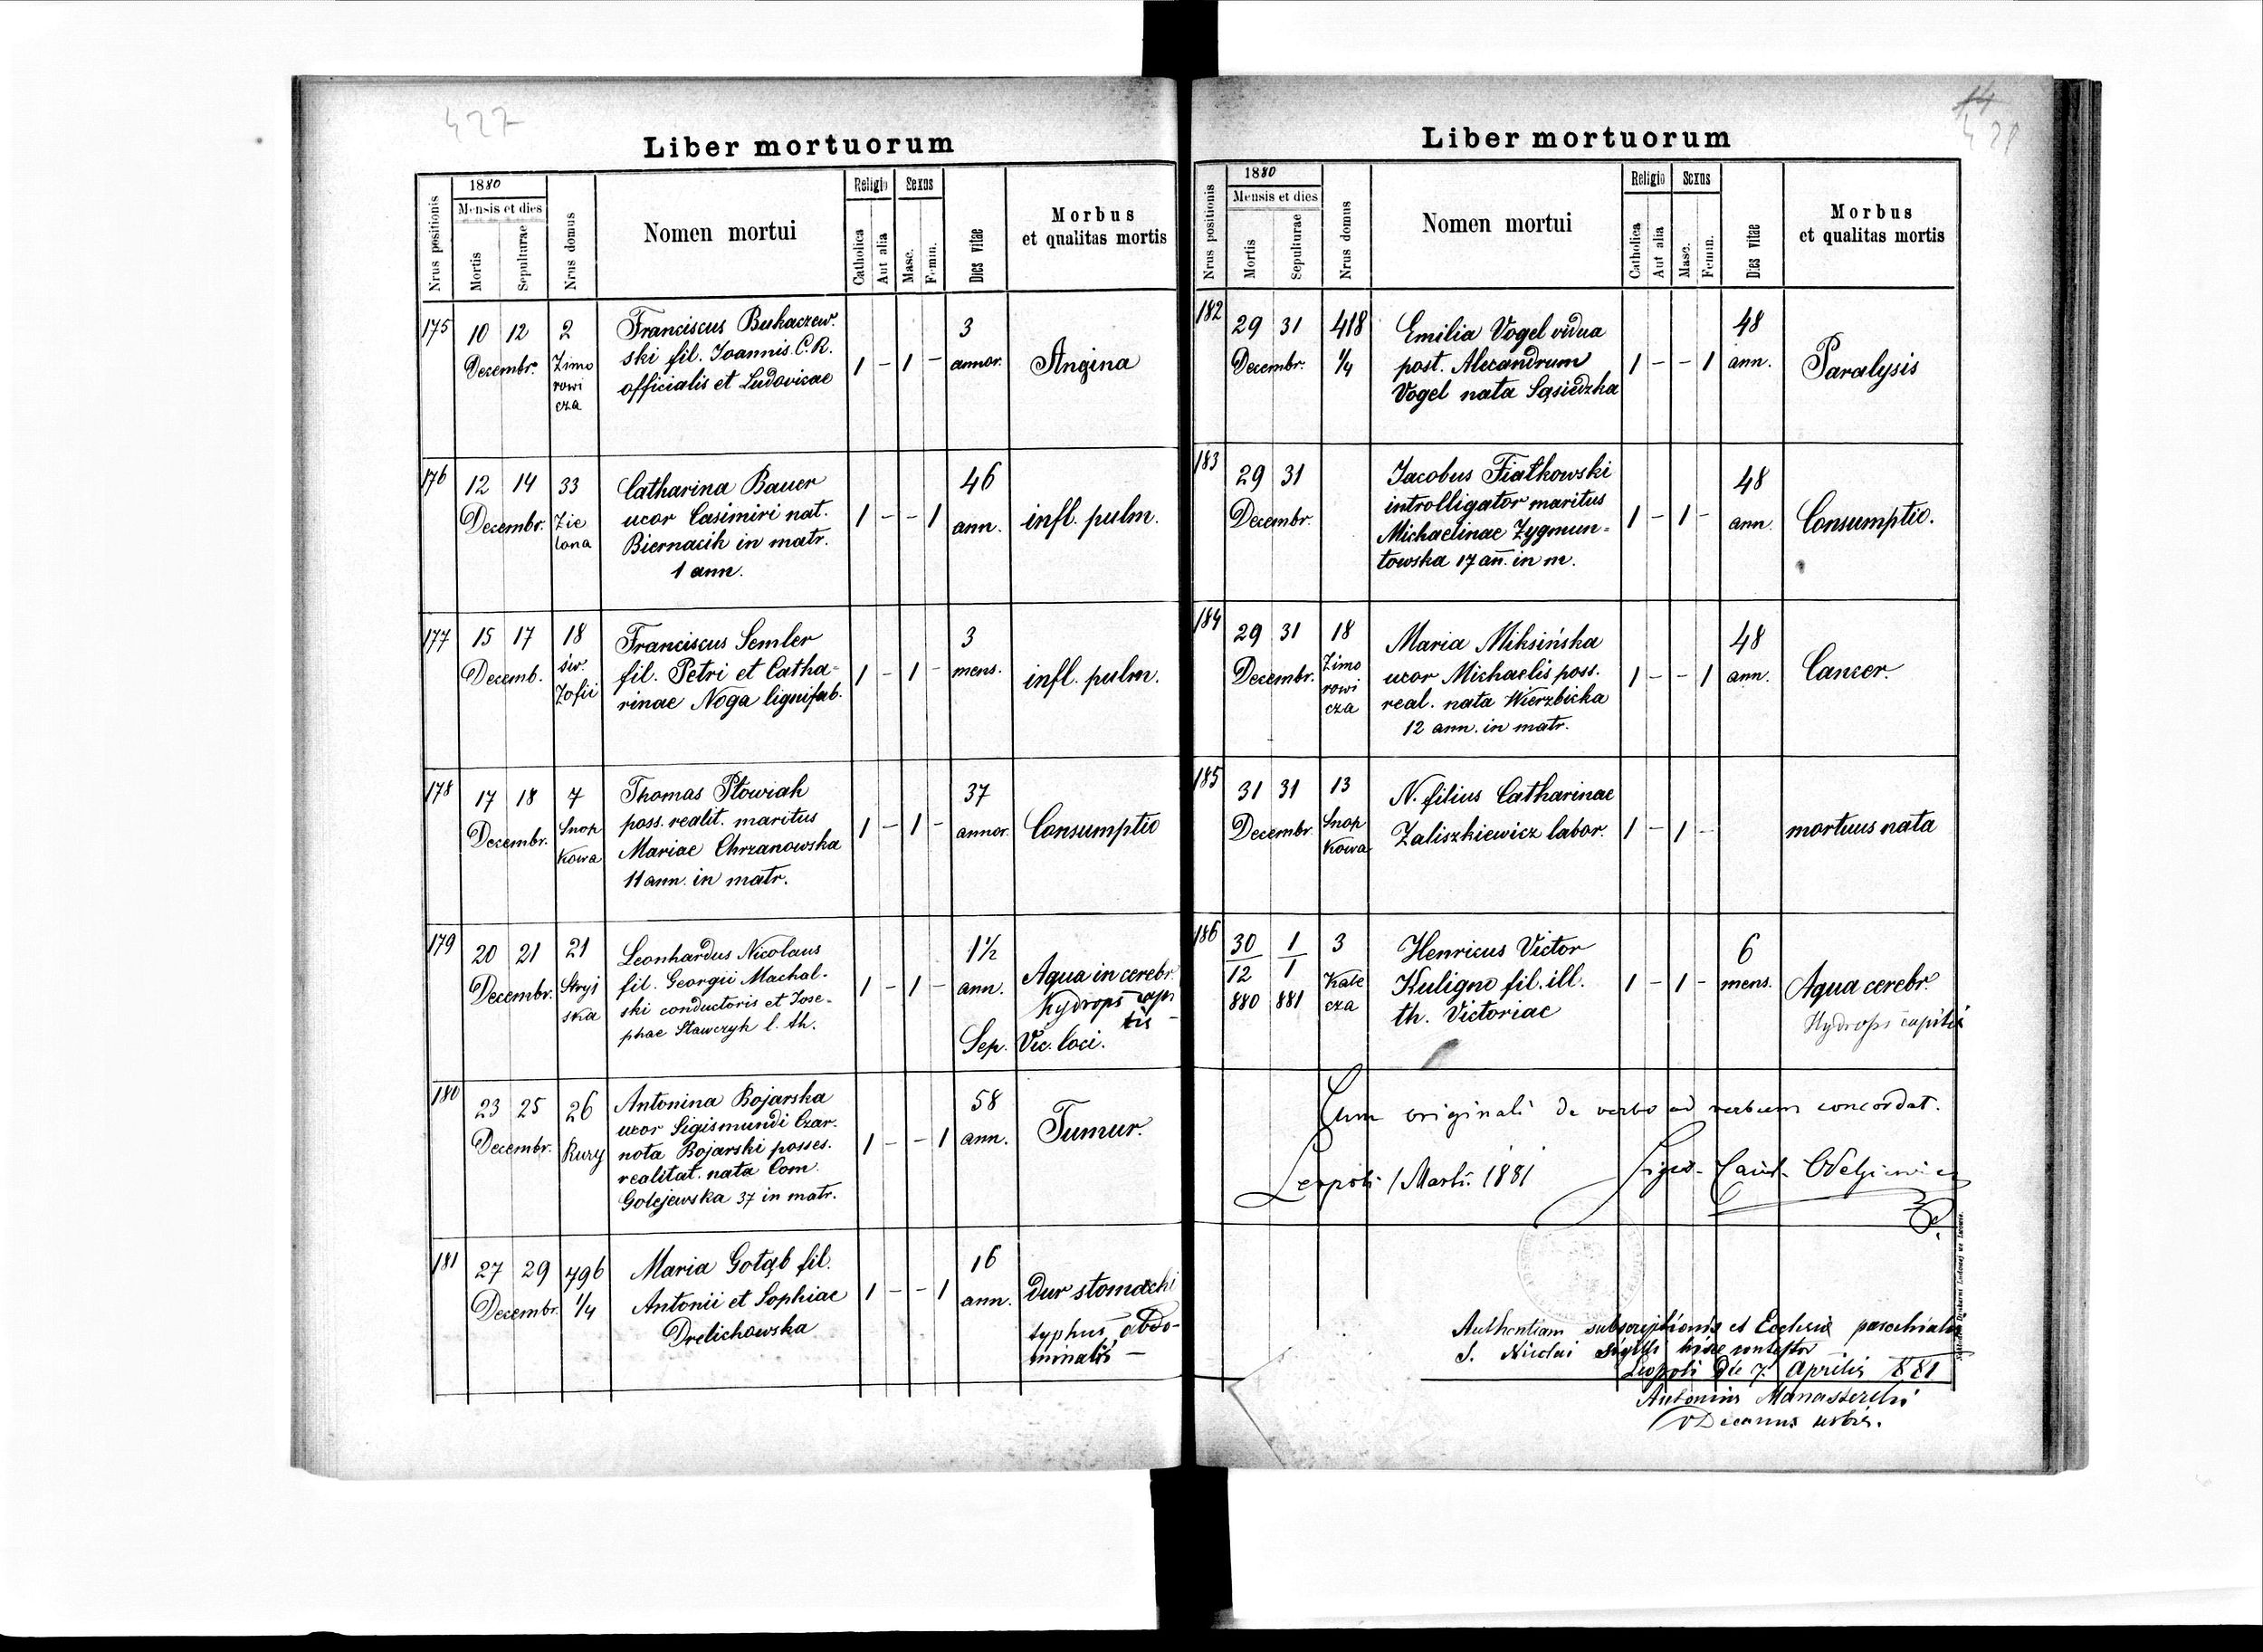 427
Liber mortuorum
Nrus positionis
1880
Mensis et dies
Mortis
Sepulturae
Nrus domus
Nomen mortui
Religio
Catholica
Aut alia
Sexus
Masc.
Femin.
Dies vitae
Morbus
et qualitas mortis
175 10 12 2 Franciscus Bukaczew. 3
Decembr. Zimo ski fil. Joannis C.R. 1 - 1 - annor. Angina
rowi officialis et Ludovicae
cza
176 12 14 33 Catharina Bauer 46
Decembr. Zie uxor Casimiri nat. 1 - - 1 ann. infl. pulm.
lona Biernacik in matr.
1 ann.
177 15 17 18 Franciscus Semler 3
Decemb. św. fil. Petri et Catha= 1 - 1 - mens. infl. pulm.
Zofii rinae Noga lignifab.
178 17 18 7 Thomas Płowiak 37
Decembr. Snop poss. realit. maritus 1 - 1 - annor. Consumptio
Kowa Mariae Chrzanowska
11 ann. in matr.
179 20 21 21 Leonhardus Nicolaus 1½
Decembr. Stryj fil. Georgii Machal- 1 - 1 - ann. Aqua in cerebr.
ska ski conductoris et Jose- hydrops capi
phae Stawczyk l. th. tis -
Sep. Vic. loci.
180 23 25 26 Antonina Bojarska 58
Decembr. Rury uxor Sigismundi Czar. 1 - - 1 ann. Tumur.
nota Bojarski posses.
realitat. nata Com.
Golejewska 37 in matr.
181 27 29 796 Maria Gołąb fil. 16
Decembr. 1/4 Antonii et Sophiae 1 - - 1 ann. dur stomachi
Drelichowska typhus abdo-
minalis -
14
428
Liber mortuorum
Nrus positionis
1880
Mensis et dies
Mortis
Sepulturae
Nrus domus
Nomen mortui
Religio
Catholica
Aut alia
Sexus
Masc.
Femin.
Dies vitae
Morbus
et qualitas mortis
182 29 31 418 Emilia Vogel vidua 48
Decembr. 1/4 post. Alexandrum 1 - - 1 ann. Paralysis
Vogel nata Sąsiedzka
183 29 31 Jacobus Fiałkowski 48
Decembr. introlligator maritus 1 - 1 - ann. Consumptio.
Michaelinae Zygmun=
towska 17 an̄. in m.
184 29 31 18 Maria Miksińska 48
Decembr. Zimo uxor Michaelis poss. 1 - - 1 ann. Cancer.
rowi real. nata Wierzbicka
cza 12 ann. in matr.
185 31 31 13 N. filius Catharinae
Decembr. Snop Zaliszkiewicz labor. 1 - 1 - mortuus nata
Kowa
186 30 1 3 Henricus Victor 6
12 1 Kale Kuligno fil. ill. 1 - 1 - mens. Aqua cerebr.
880 881 cza th. Victoriae Hydrops capitis
Cum originali de verbo ad verbum concordat.
Leopoli 1 Marti. 1881
Authentiam subscriptionis et Ecclesiae parochialis
S. Nicolai sigilli hisce contestor
Leopoli die 7. Aprilis 881
Antonius Manasterski
Decanus urbis.